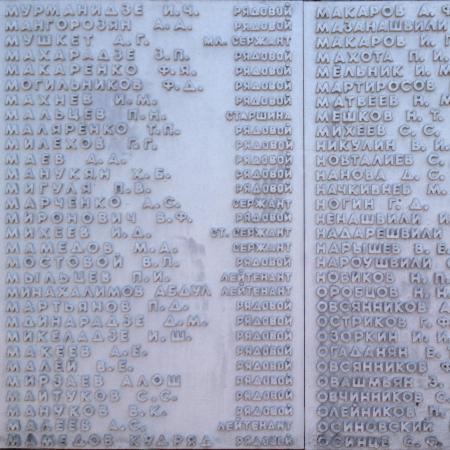 МУРМАНИДЗЕ И.Ч. РЯДОВОЙ
МАНГОРОЗЯН А.А. РЯДОВОЙ
МУШКЕТ А.Г. МЛ. СЕРЖАНТ
МАХАРАДЗЕ З.П. РЯДОВОЙ
МАКАРЕНКО Ф.Я. РЯДОВОЙ
МОГИЛЬНИКОВ Ф.Д. РЯДОВОЙ
МАХНЕВ И.М. РЯДОВОЙ
МАЛЬЦЕВ П.Н. СТАРШИНА
МАЛЯРЕНКО Т.П. РЯДОВОЙ
МИЛЕХОВ Г.Г. РЯДОВОЙ
МАЕВ А.А. РЯДОВОЙ
МАНУКЯН Х.Б. РЯДОВОЙ
МИГУЛЯ П.В. РЯДОВОЙ
МАРЧЕНКО А.С. СЕРЖАНТ
МИРОНОВИЧ В.Ф. РЯДОВОЙ
МИХЕЕВ И.Д. СТ. СЕРЖАНТ
МАМЕДОВ М.А. СЕРЖАНТ
МОСТОВОЙ В.П. РЯДОВОЙ
МЫЛЬЦЕВ П.И. ЛЕЙТЕНАНТ
МИНАХАЛИМОВ АБДУЛ ЛЕЙТЕНАНТ
МАРТЬЯНОВ П.Д. РЯДОВОЙ
МДИНАРАДЗЕ Д.М. РЯДОВОЙ
МИКЕЛАДЗЕ И.Ш. РЯДОВОЙ
МАКЕЕВ А.Е. РЯДОВОЙ
МАЛЕЙ В.Е. РЯДОВОЙ
МИРЗАЕВ АЛОШ РЯДОВОЙ
МАЙТУКОВ С.С. РЯДОВОЙ
МАНУКОВ В.К. РЯДОВОЙ
МАЛЕЕВ А.С. ЛЕЙТЕНАНТ
МАМЕДОВ КУДРЯД РЯДОВОЙ
МАКАРОВ А.
МАЗАНАШВИЛИ
МАКАРОВ И.
МАХОТА П.И.
МЕЛЬНИК И.М
МАРТИРОСОВ
МАТВЕЕВ Н.М
МЕШКОВ Н.Т.
МИХЕЕВ С.С.
НИКУЛИН В.И
НОВТАЛИЕВ С.
НАНОВА Д.С.
НАЧКИВНЕВ М.
НОГИН Г.Д.
НЕНАШВИЛИ И
НАДАРЕШВИЛИ
НАРЫШЕВ В.Е
НАРОУШВИЛИ
НОВИКОВ Н.П
ОРОБЦОВ Н.Н
ОВСЯННИКОВ
ОСТРИКОВ Г.Ф
ОЗОРКИН И.И
ОГАДАНЯН Е.
ОВСЯННИКОВ Ф
ОВАШМЬЯН З.
ОВЧИННИКОВ С
ОЛЕЙНИКОВ П.
ОСИНОВСКИЙ
ОСИНЦЕ С.Ф.